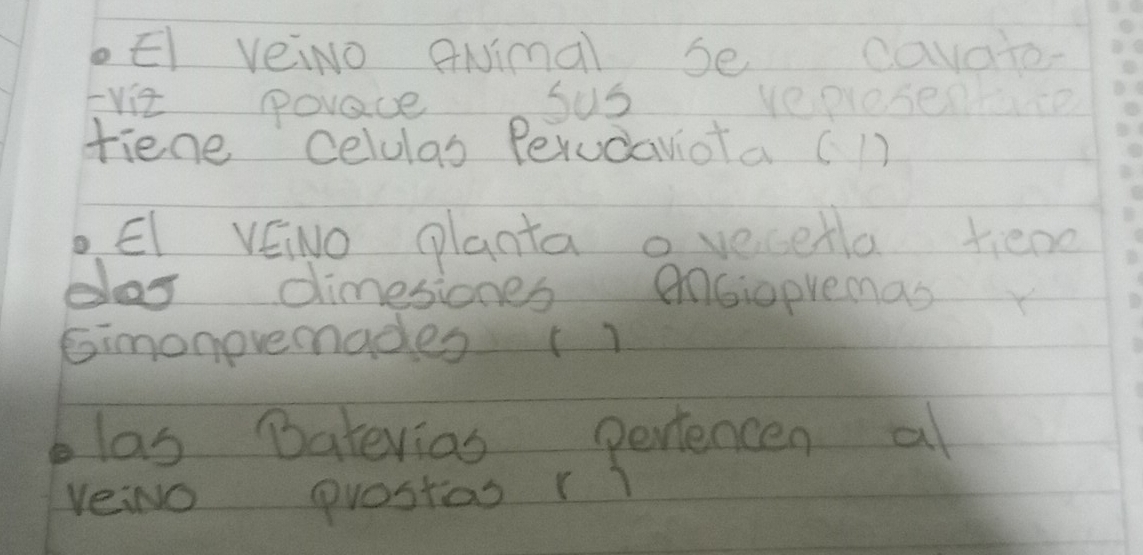 • El veiNO ANimal Se cavate-
-viz povque sus representate
tiene celulas Perudaviota ( )
• El VEiNO planta o vegetla tiene
dos dimesiones angiopremas Y
Gimonpremades ( )
• las Batevias pertencen al
veiNO prostias ( )